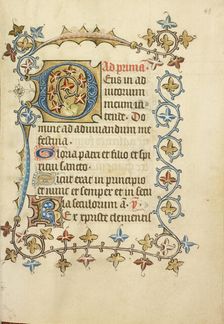 Ad prima
Deus in ad
iutorium
meum in
tende. Do
mine ad adiuuandum me
festina
Gloria patri et filio et spi
ritui sancto
Sicut erat in principio
et nunc et semper et in secu
la seculorum a. 
Rex xpriste clemensis